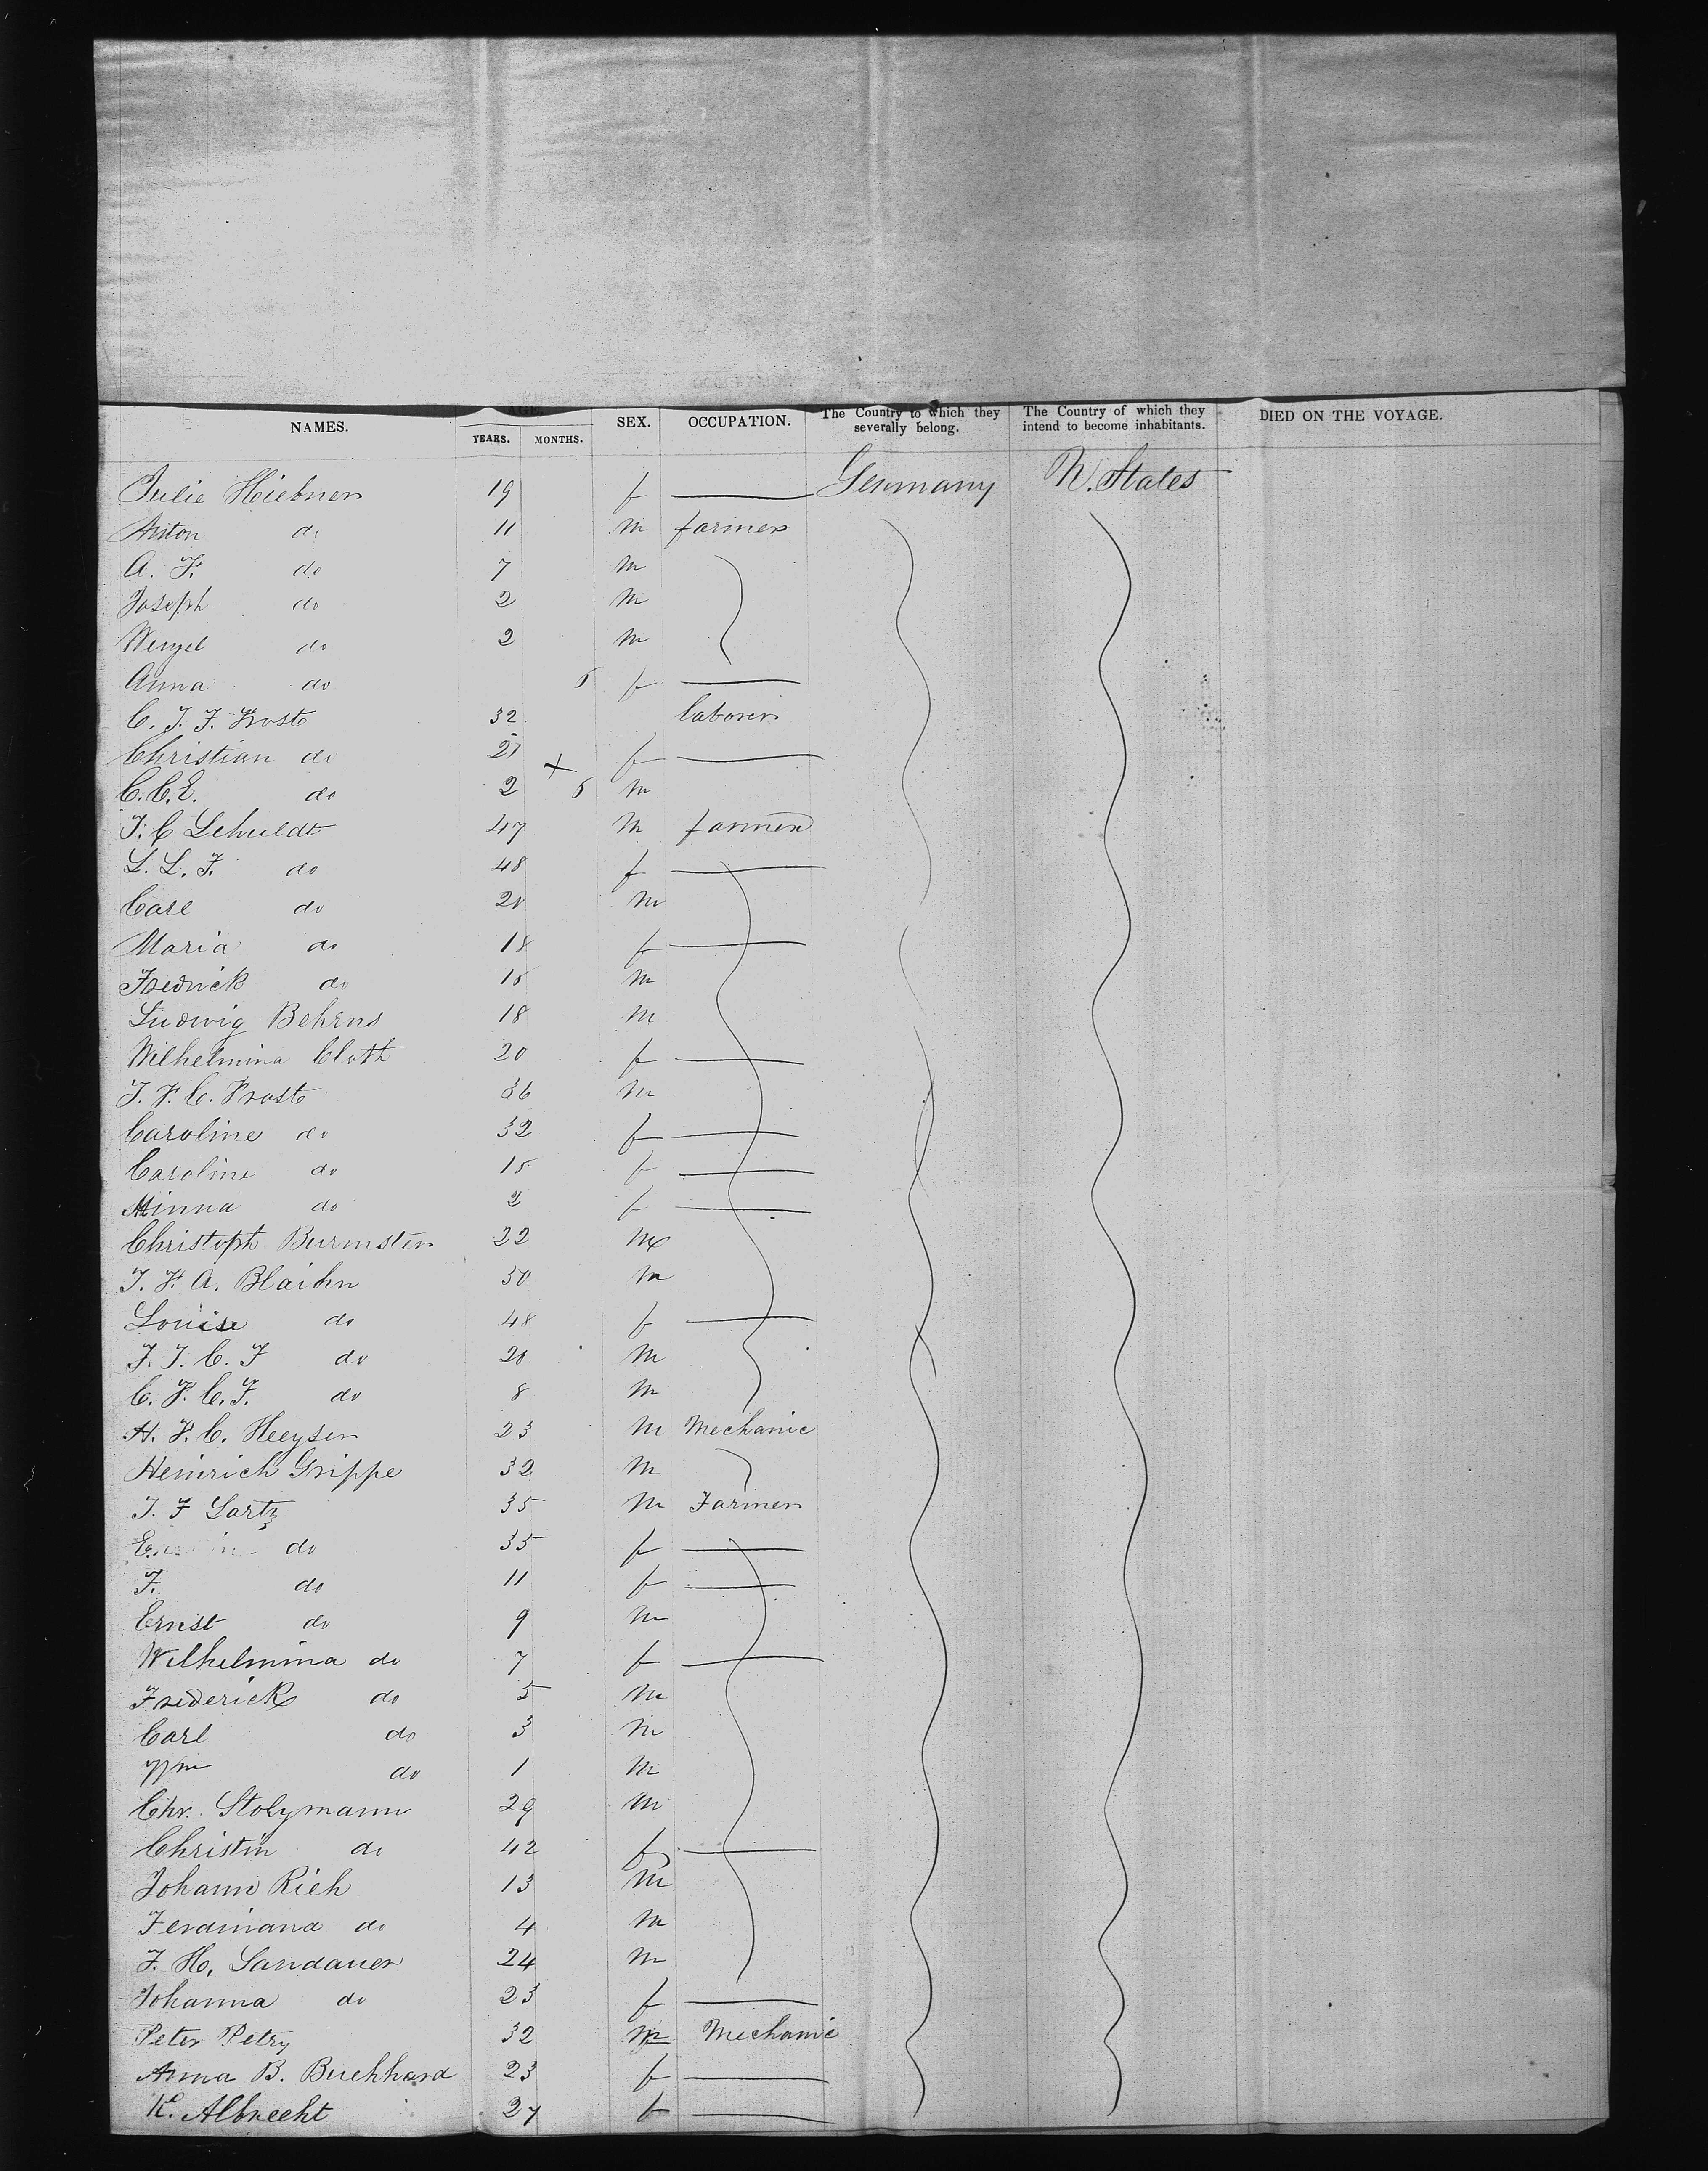 NAMES. AGE. YEARS. MONTHS. SEX. OCCUPATION. The Country to which they severally belong. The Country of which they intend to become inhabitants. DIED ON THE VOYAGE.
Julie Hiebner 19 f Germany U. States
Anton do 11 m farmer
A. F. do 7 m
Joseph do 2 m
Wenzel do 2 m
Anna do 6 f
C. J. F. Frost 32 laborer
Christian do 21 f
C. C. E. do 2 6 m
J. C Schuldt 47 m farmer
L. L. F. do 48 f
Carl do 20 m
Maria do 18 f
Fredrick do 15 m
Ludwig Behrns 18 m
Wilhelmina Cloth 20 f
J. F. C. Frost 36 m
Caroline do 32 f
Caroline do 15 f
Minna do 2 f
Christoph Burmster 22 m
J. F. A. Blaihn 50 m
Louise do 48 f
F. J. C. F do 20 m
C. F. C. F. do 8 m
H. F. C. Heeyser 23 m Mechanic
Heinrich Grippe 32 m
J. F Gartz 35 m Farmer
do 35 f
F. do 11 f
Ernst do 9 m
Wilhelmina do 7 f
Frederick do 5 m
Carl do 3 m
Wm do 1 m
Chr. Stolzmann 29 m
Christin do 42 f
Johann Rieh 13 m
Ferdinand do 4 m
F. H. Landauer 24 m
Johanna do 23 f
Peter Petry 32 m Mechanic
Anna B. Buchhard 23 f
K. Albrecht 27 f